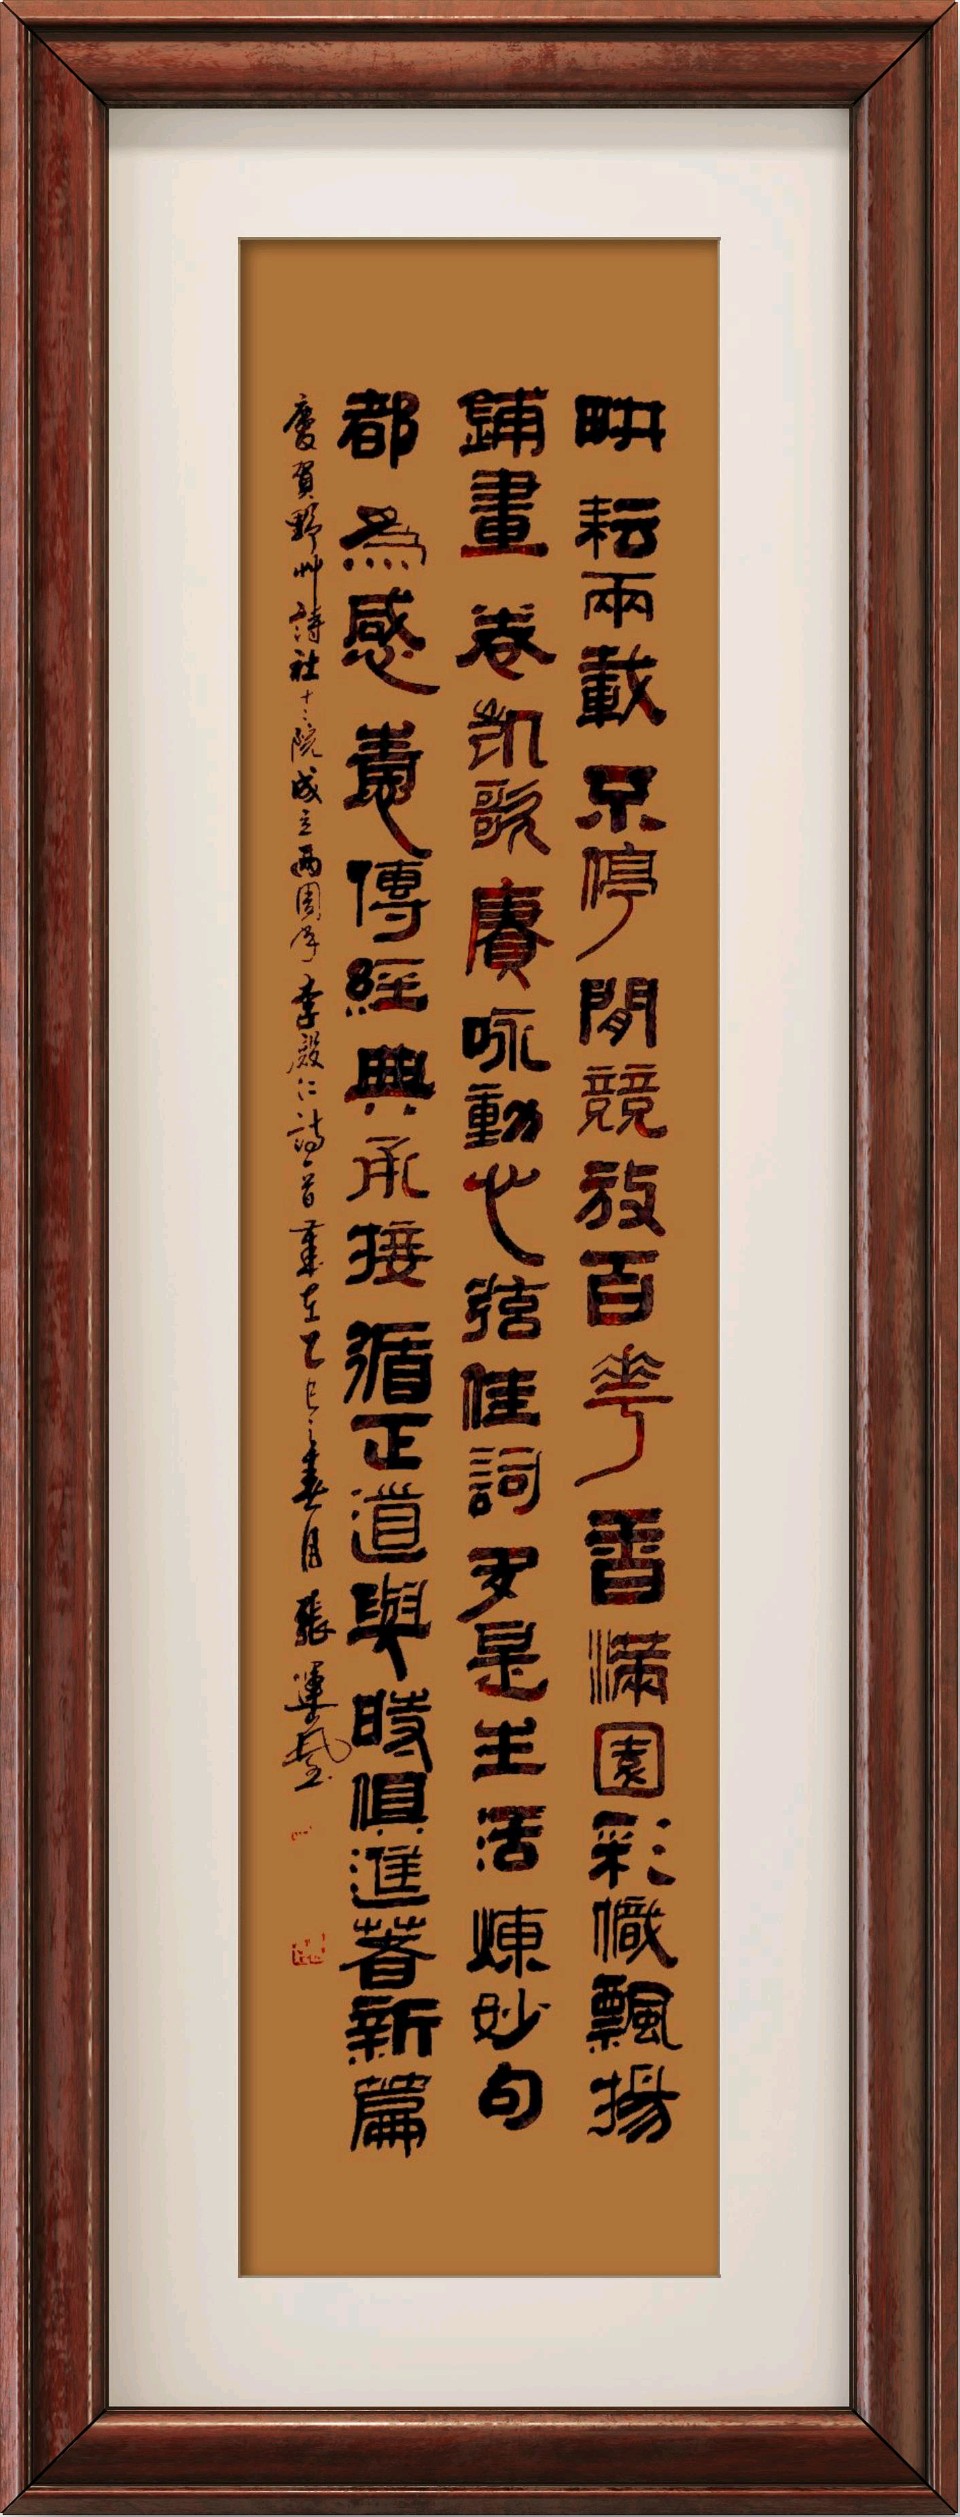 畊耘兩載不停閒競放百花香滿園彩幟飄揚
鋪畫卷凱歌賡咏動心弦佳詞多是生活煉妙句
都為感意傳經典承接循正道與時俱進著新篇
慶賀野艸詩社十二院成立兩周年李殿仁詩一首 乙巳之春月張運